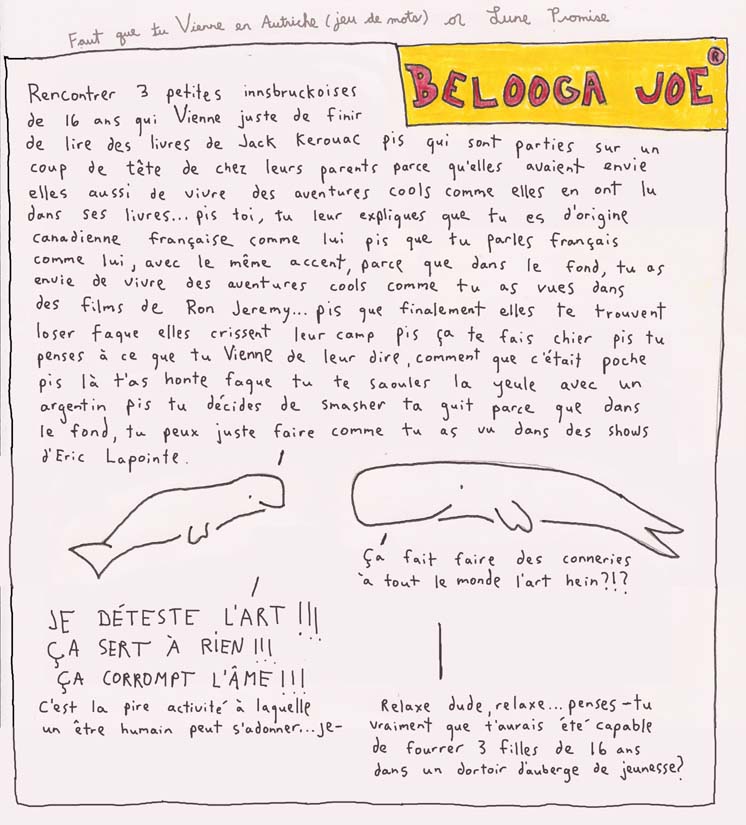 Faut que tu Vienne en Autriche (jeu de mots) or Lune Promise
BELOOGA JOE®
Rencontrer 3 petites innsbruckoises
de 16 ans qui Vienne juste de finir
de lire des livres de Jack Kerouac pis qui sont parties sur un
coup de tête de chez leurs parents parce qu'elles avaient envie
elles aussi de vivre des aventures cools comme elles en ont lu
dans ses livres... pis toi, tu leur expliques que tu es d'origine
canadienne française comme lui pis que tu parles français
comme lui, avec le même accent, parce que dans le fond, tu as
envie de vivre des aventures cools comme tu as vues dans
des films de Ron Jeremy... pis que finalement elles te trouvent
loser faque elles crissent leur camp pis ça te fais chier pis tu
penses à ce que tu Vienne de leur dire, comment que c'était poche
pis là t'as honte faque tu te saoules la yeule avec un
argentin pis tu décides de smasher ta guit parce que dans
le fond, tu peux juste faire comme tu as vu dans des shows
d'Eric Lapointe.
Ça fait faire des conneries
à tout le monde l'art hein?!?
JE DÉTESTE L'ART !!!
ÇA SERT À RIEN !!!
ÇA CORROMPT L'ÂME !!!
C'est la pire activité à laquelle
un être humain peut s'adonner... je-
Relaxe dude, relaxe... penses-tu
vraiment que t'aurais été capable
de fourrer 3 filles de 16 ans
dans un dortoir d'auberge de jeunesse?